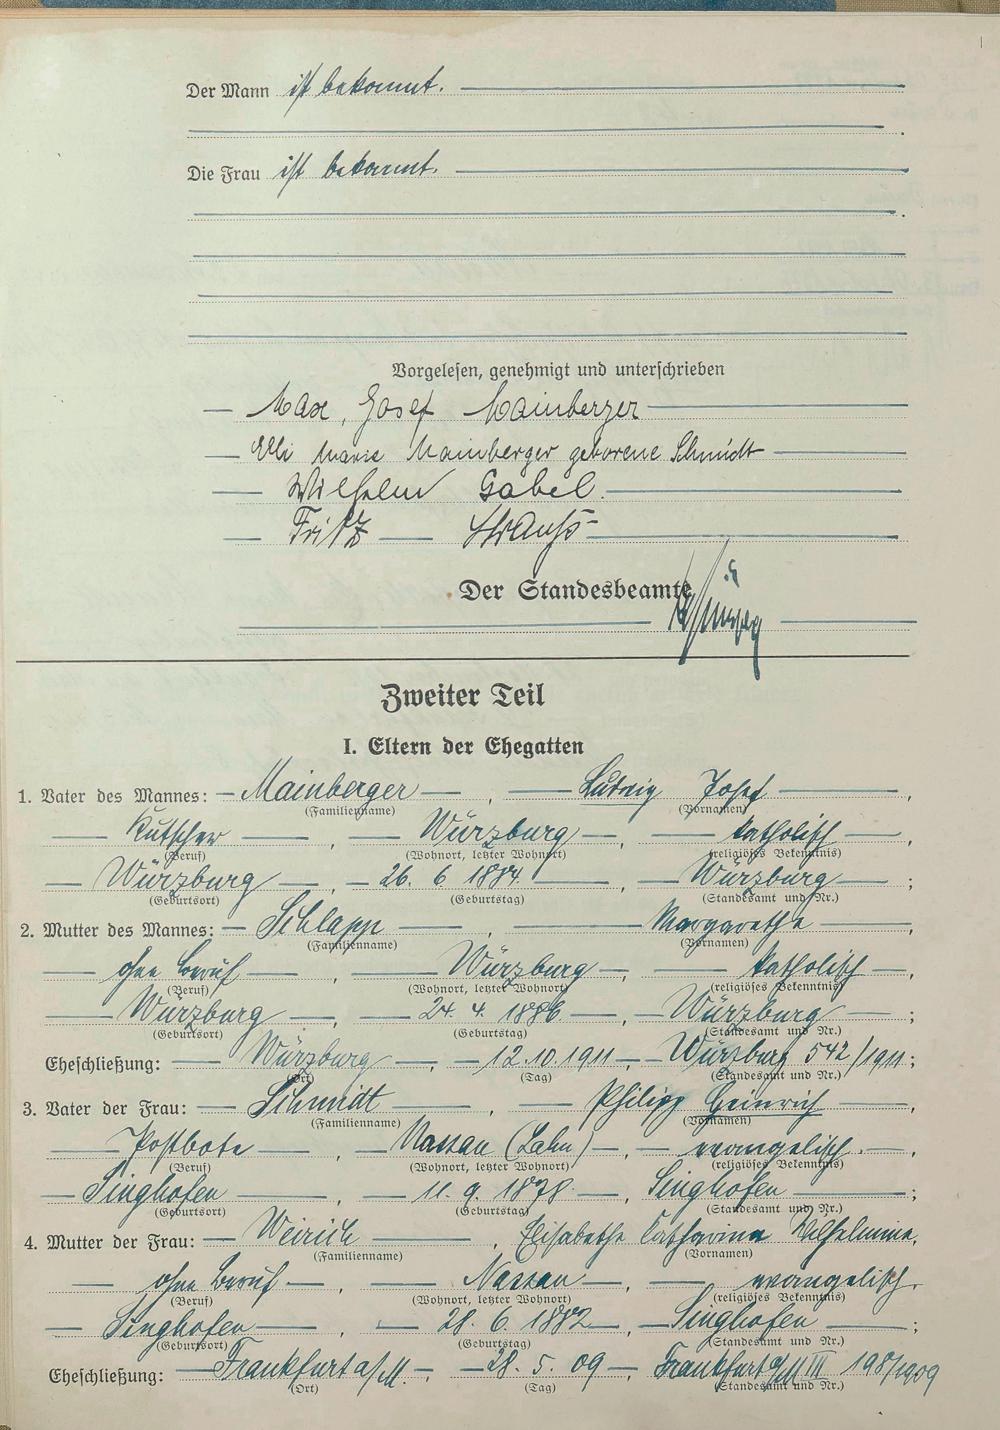 Der Mann ist bekannt.
Die Frau ist bekannt.
Vorgelesen, genehmigt und unterschrieben
Max, Josef Mainberger
Elli Marie Mainberger geborene Schmidt
Wilhelm Gabel.
Fritz Strauß
Der Standesbeamte
Zweiter Teil
I. Eltern der Ehegatten
1. Vater des Mannes: Mainberger, Ludwig Josef,
(Familienname) (Vornamen)
Kutscher, Würzburg, katholisch,
(Beruf) (Wohnort, letzter Wohnort) (religiöses Bekenntnis)
Würzburg, 26. 6. 1884, Würzburg;
(Geburtsort) (Geburtstag) (Standesamt und Nr.)
2. Mutter des Mannes: Schlapp, Margarethe,
(Familienname) (Vornamen)
ohne Beruf, Würzburg, katholisch,
(Beruf) (Wohnort, letzter Wohnort) (religiöses Bekenntnis)
Würzburg, 24. 4. 1886, Würzburg;
(Geburtsort) (Geburtstag) (Standesamt und Nr.)
Eheschließung: Würzburg, 12.10.1911, Würzburg 542/1911;
(Ort) (Tag) (Standesamt und Nr.)
3. Vater der Frau: Schmidt, Philipp Heinrich,
(Familienname) (Vornamen)
Postbote, Nassau (Lahn), evangelisch,
(Beruf) (Wohnort, letzter Wohnort) (religiöses Bekenntnis)
Singhofen, 11. 9. 1878, Singhofen;
(Geburtsort) (Geburtstag) (Standesamt und Nr.)
4. Mutter der Frau: Weirich, Elisabethe Catharina Wilhelmine,
(Familienname) (Vornamen)
ohne Beruf, Nassau, evangelisch,
(Beruf) (Wohnort, letzter Wohnort) (religiöses Bekenntnis)
Singhofen, 28. 6. 1882, Singhofen;
(Geburtsort) (Geburtstag) (Standesamt und Nr.)
Eheschließung: Frankfurt a/M., 28. 5. 09, Frankfurt a/M III 198/1909
(Ort) (Tag) (Standesamt und Nr.)